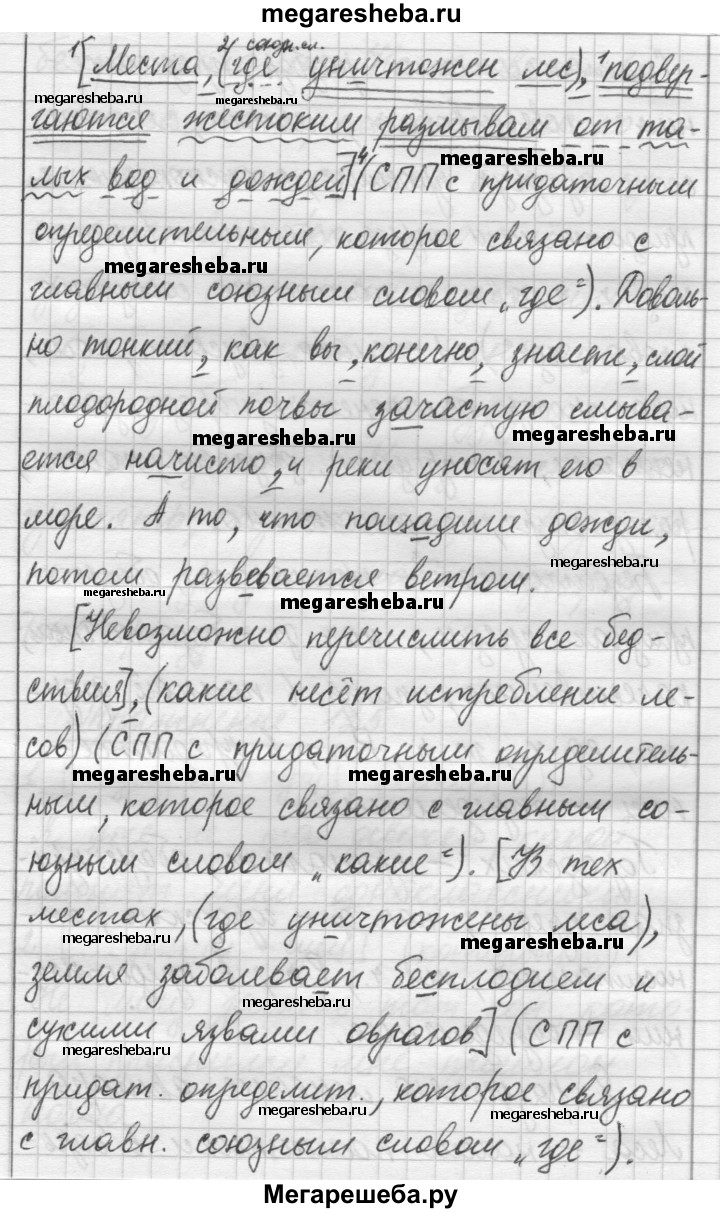 megaresheba.ru
1[Места, 2(где союзн.сл. уничтожен лес), 1подвер-
megaresheba.ru megaresheba.ru megaresheba.ru
гаются жестоким размывам от та-
megaresheba.ru
лых вод и дождей]4 (СПП с придаточным
определительным, которое связано с
megaresheba.ru
главным союзным словом „где“). Доволь-
но тонкий, как вы, конечно, знаете, слой
плодородной почвы зачастую смыва-
megaresheba.ru megaresheba.ru
ется начисто, и реки уносят его в
море. А то, что пощадили дожди,
megaresheba.ru
потом развевается ветром.
megaresheba.ru megaresheba.ru
[Невозможно перечислить все бед-
ствия], (какие несёт истребление ле-
сов) (СПП с придаточным определитель-
megaresheba.ru megaresheba.ru
ным, которое связано с главным со-
юзным словом „какие“). [В тех
местах, (где уничтожены леса),
megaresheba.ru megaresheba.ru
земля заболевает бесплодием и
megaresheba.ru
сухими язвами оврагов] (СПП с
megaresheba.ru
придат. определит., которое связано
megaresheba.ru megaresheba.ru
с главн. союзным словом „где“).
Мегарешеба.ру